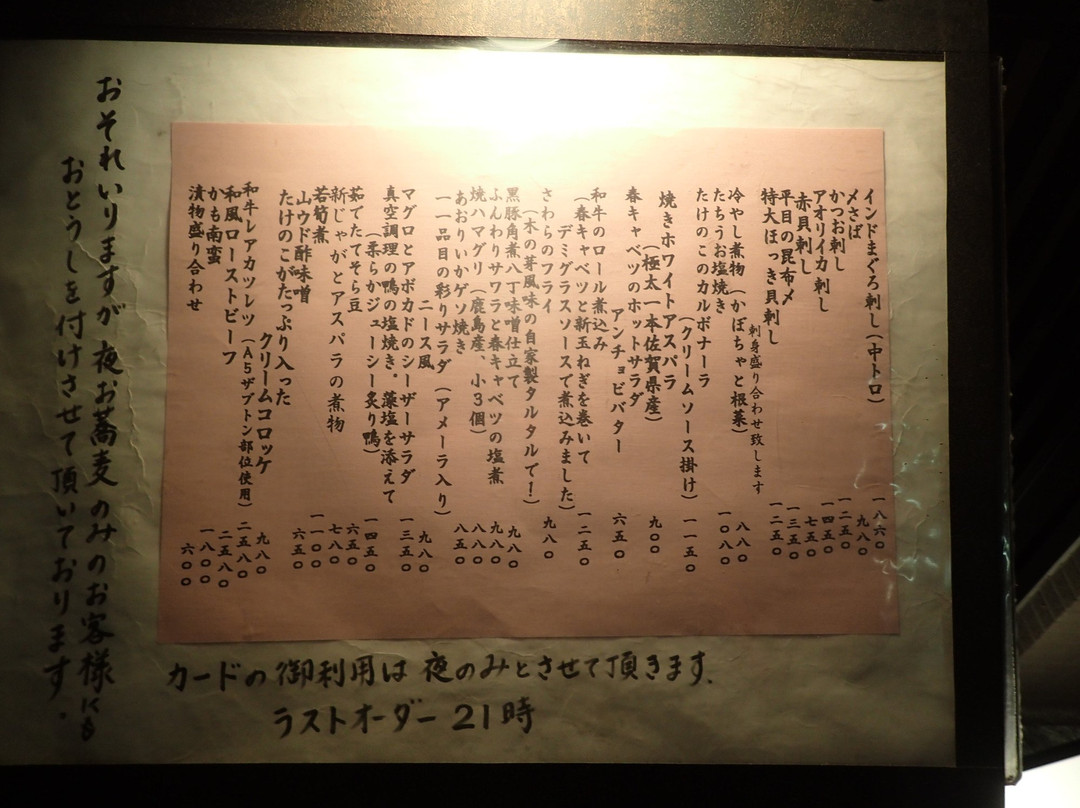 インドまぐろ刺し(中トロ) 一八六〇
〆さば 九八〇
かつお刺し 一二五〇
アオリイカ刺し 一四五〇
赤貝刺し 七五〇
平目の昆布〆 一三五〇
特大ほっき貝刺し 一二五〇
刺身盛り合わせ致します
冷やし煮物(かぼちゃと根菜) 八八〇
たちうお塩焼き 一〇八〇
たけのこのカルボナーラ
(クリームソース掛け) 一一五〇
焼きホワイトアスパラ
(極太一本佐賀県産) 九〇〇
春キャベツのホットサラダ
アンチョビバター 六五〇
和牛のロール煮込み
(春キャベツと新玉ねぎを巻いて
デミグラスソースで煮込みました) 一二五〇
さわらのフライ
(木の芽風味の自家製タルタルで!) 九八〇
黒豚角煮八丁味噌仕立て 九八〇
ふんわりサワラと春キャベツの塩煮 九八〇
焼ハマグリ(鹿島産、小3個) 八八〇
あおりいかゲソ焼き 八五〇
一一品目の彩りサラダ(アメーラ入り)
ニース風 九八〇
マグロとアボカドのシーザーサラダ 一三五〇
真空調理の鴨の塩焼き。藻塩を添えて
(柔らかジューシー炙り鴨) 一四五〇
茹でたてそら豆 六五〇
新じゃがとアスパラの煮物 七八〇
若筍煮 一一〇〇
山ウド酢味噌 六五〇
たけのこがたっぷり入った
クリームコロッケ 九八〇
和牛レアカツレツ(A5ザブトン部位使用) 二五八〇
和風ローストビーフ 二五八〇
かも南蛮 一八〇〇
漬物盛り合わせ 六〇〇
おそれいりますが夜お蕎麦のみのお客様にも
おとうしを付けさせて頂いております.
カードの御利用は夜のみとさせて頂きます.
ラストオーダー 21時